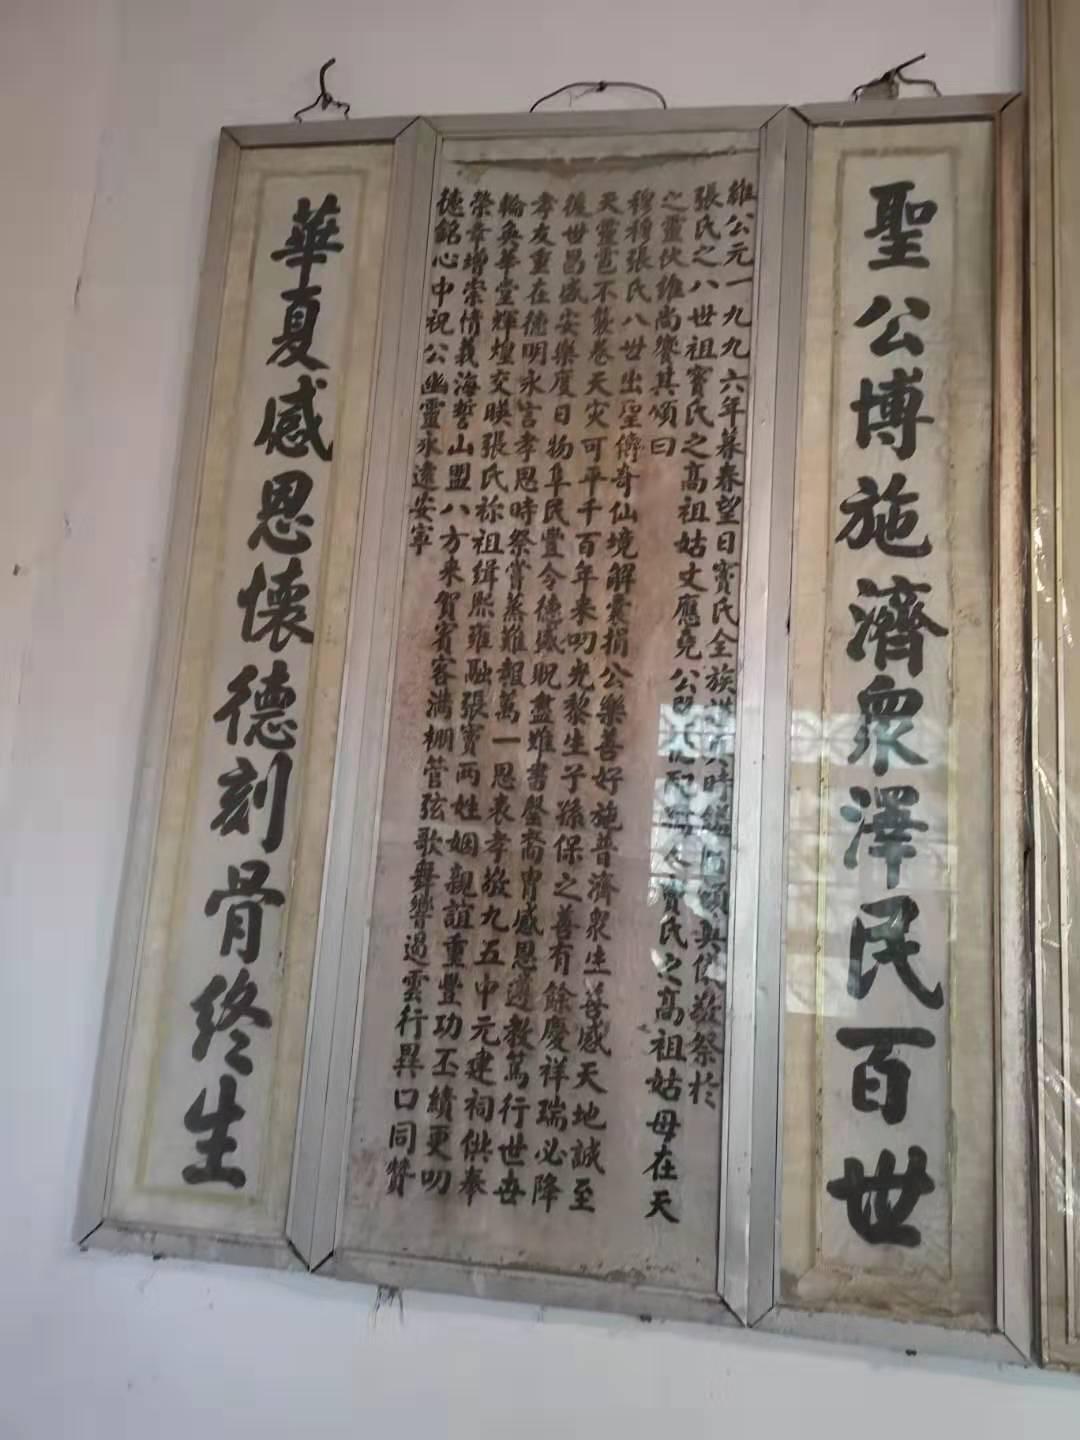 聖公博施濟衆澤民百世
維公元一九九六年暮春望日竇氏全族
張氏之八世祖竇氏之高祖姑丈應堯公
之靈伏維尚饗其頌曰
穆穆張氏八世出聖傳奇仙境解囊捐公樂善好施普濟衆生善感天地誠至
天靈雹不襲卷天灾可平千百年来叨光黎生子孫保之善有餘慶祥瑞必降
後世昌盛安樂度日物阜民豐令德盛貺盡難書罄裔胄感恩遵教篤行世世
孝友重在德明永言孝思時祭嘗蒸難報萬一恩表孝敬九五中元建祠供奉
輪奂華堂輝煌交映張氏祢祖緝熙雍融張竇两姓姻親誼重豐功丕績更叨
榮幸增崇情義海誓山盟八方来賀賓客满棚管弦歌舞響遏雲行異口同赞
德銘心中祝公幽靈永遠安寧
華夏感恩懷德刻骨终生